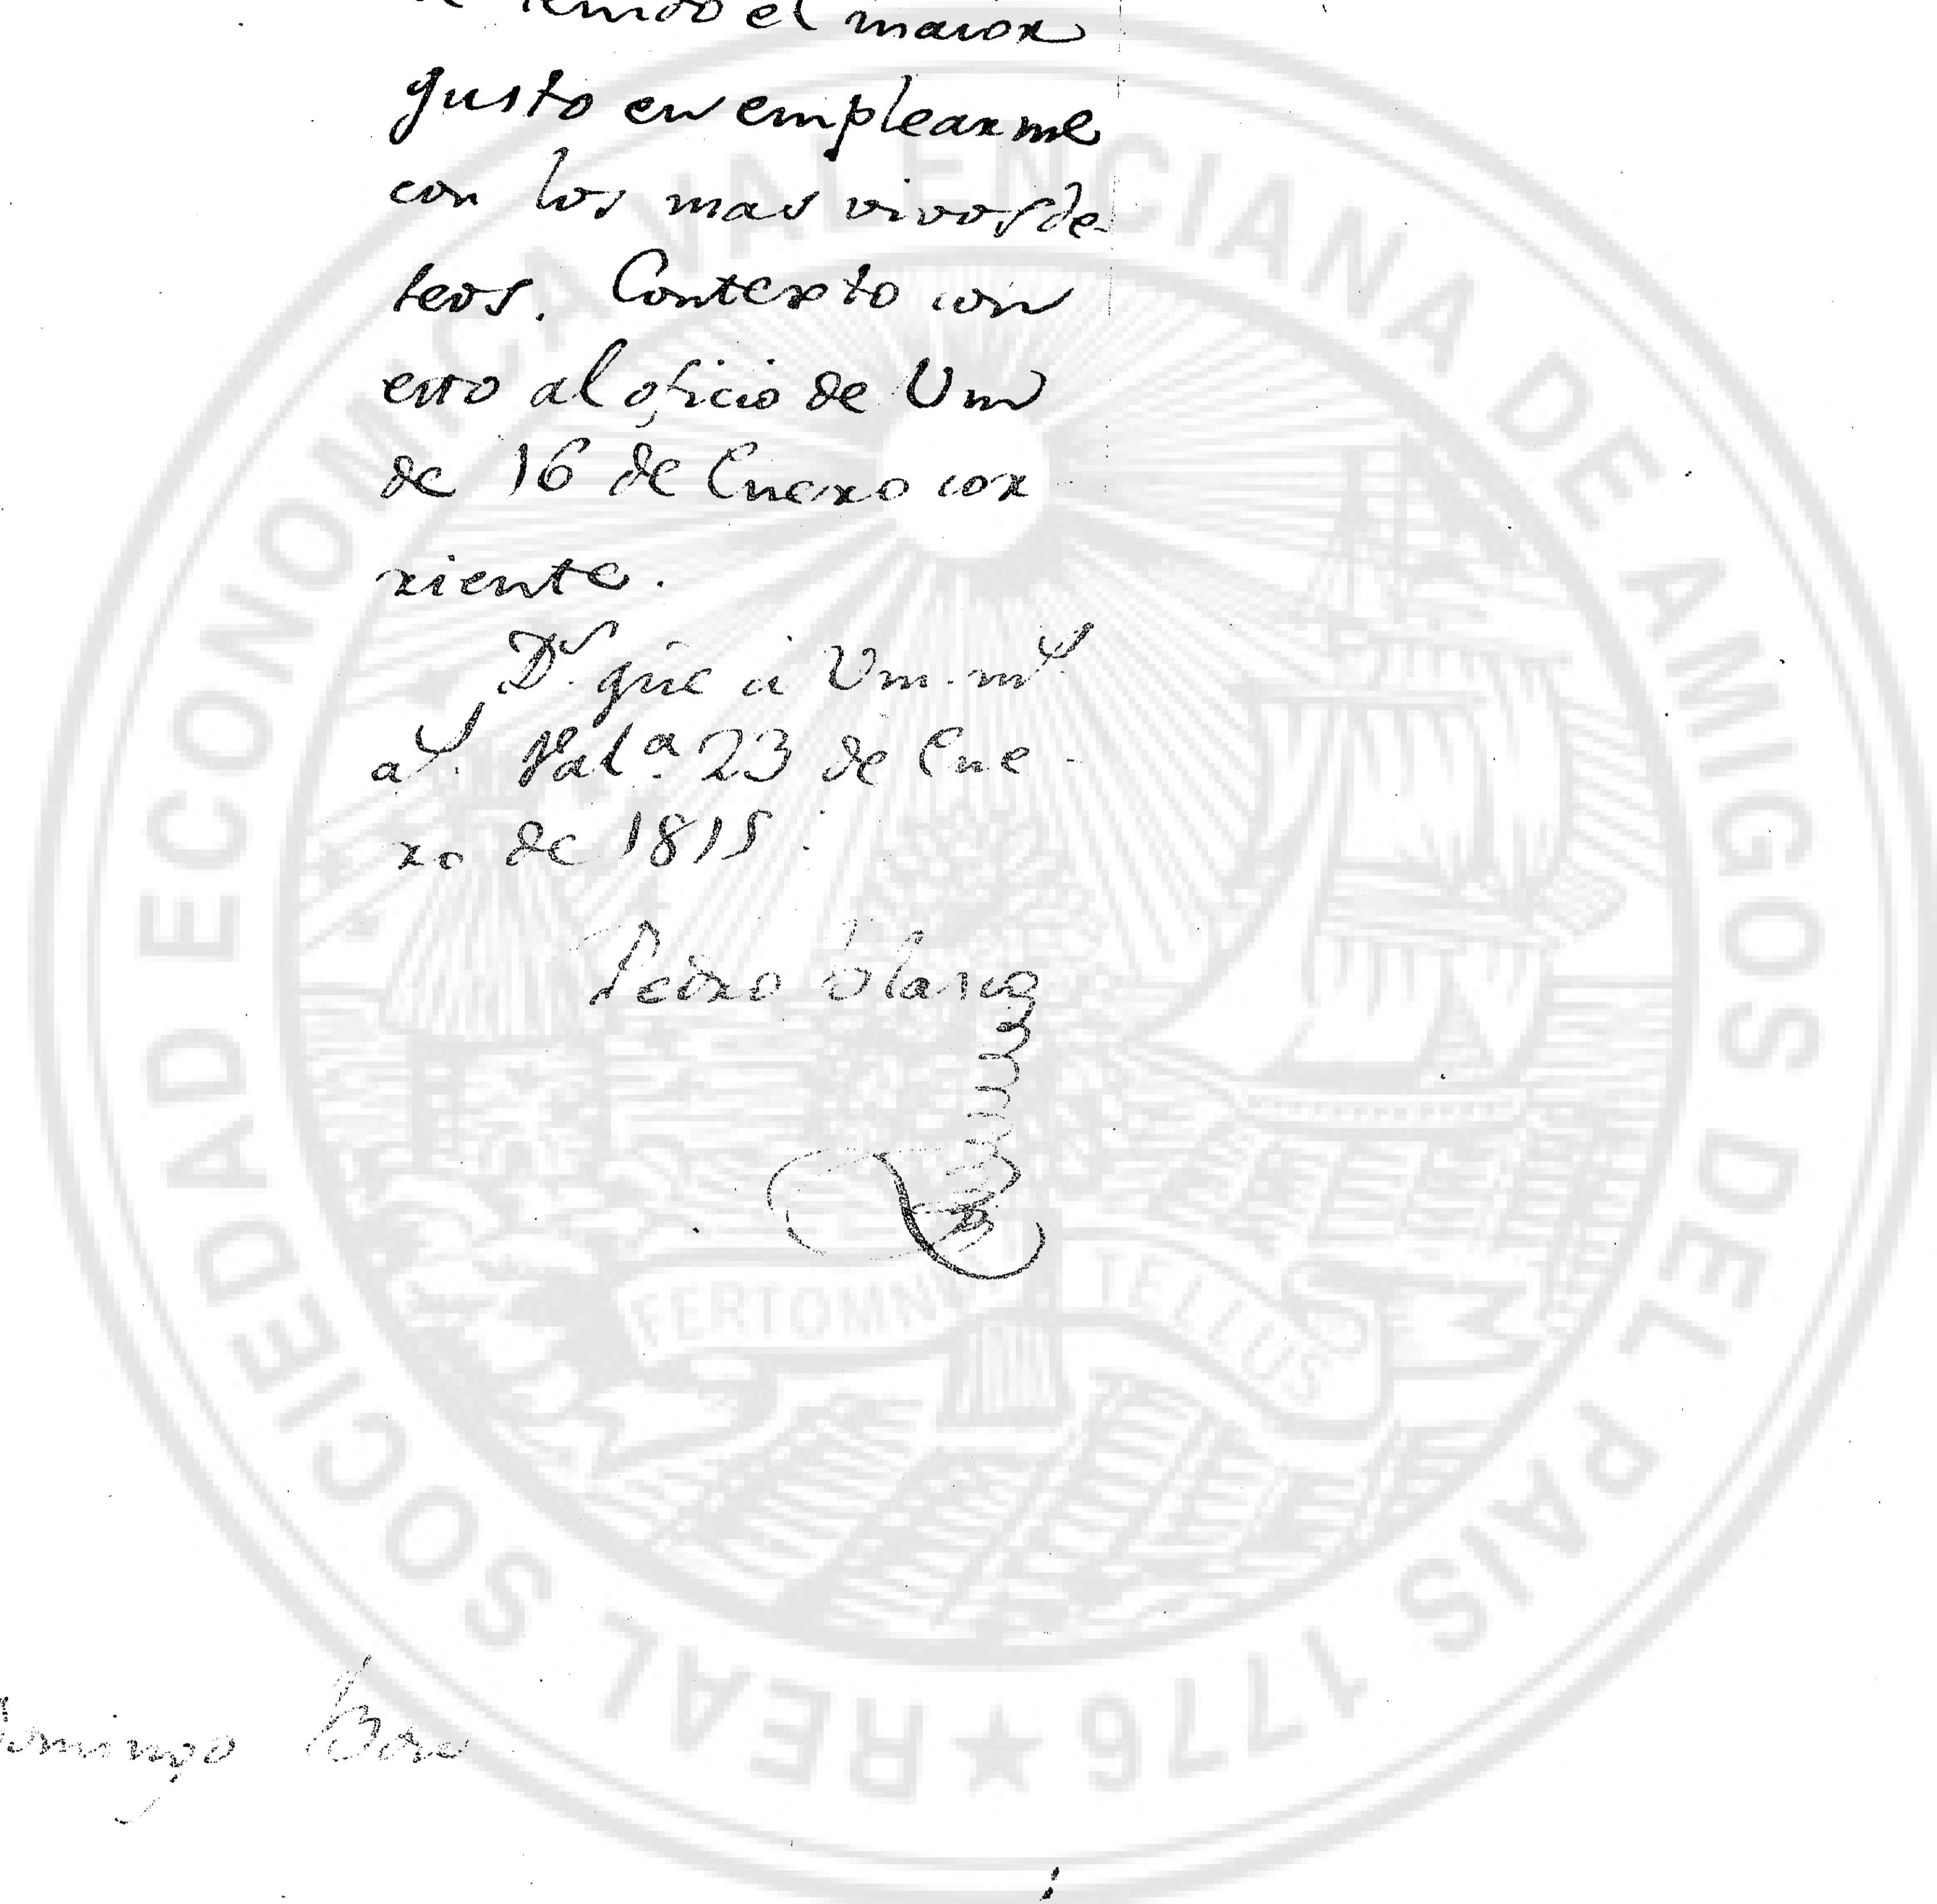 tenido el maior
gusto en emplearme
con los mas vivos de-
seos. Contexto con
esto al oficio de Vm
de 16 de Enero cor
riente.
Ds. gūe á Vm. ms.
as. Vala. 23 de Ene-
ro de 1815.
Pedro Blasco
Domingo
REAL SOCIEDAD ECONOMICA VALENCIANA DE AMIGOS DEL PAIS 1776
FERT OMNIA TELLUS